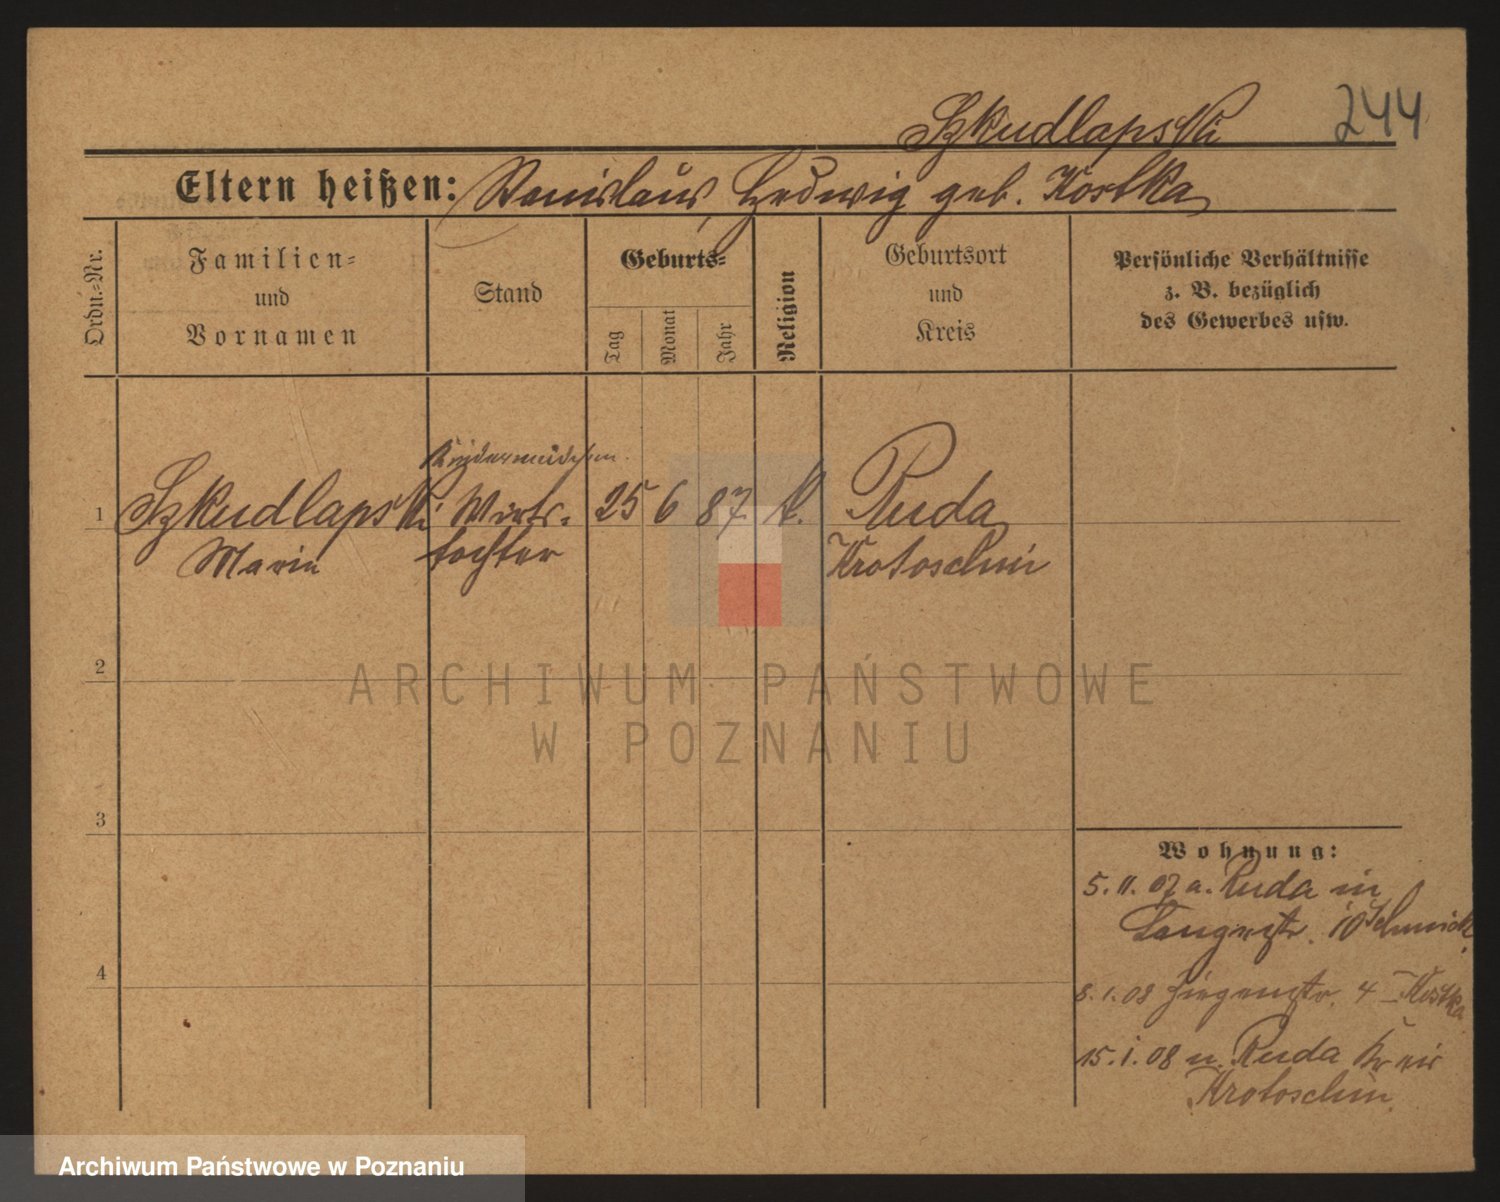 Szkudlapski 244
Eltern heißen: Stanislaus, Hedwig geb. Kostka
Ordn.-Nr.
Familien-
und
Vornamen
Stand
Geburts-
Tag
Monat
Jahr
Religion
Geburtsort
und
Kreis
Persönliche Verhältnisse
z. B. bezüglich
des Gewerbes usw.
Kindermädchen
1 Szkudlapski Wirts- 25 6 87 k. Ruda
Marie tochter Krotoschin
2
3
4
Wohnung:
5. 11. 07 a. Ruda in
Langestr. 10 Schmick
8. 1. 08 4 - Kostka
15. 1. 08 n. Ruda Kreis
Krotoschin
ARCHIWUM PAŃSTWOWE
W POZNANIU
Archiwum Państwowe w Poznaniu